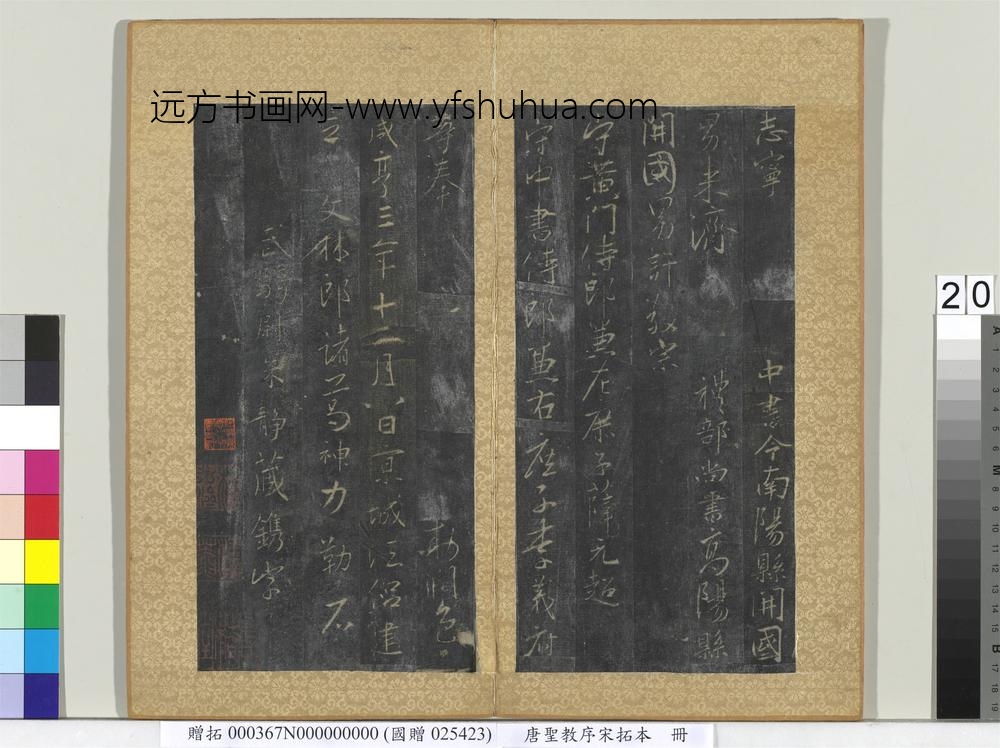 远方书画网-www.yfshuhua.com
志寧 中書令南陽縣開國
男来濟 禮部尚書高陽縣
開國男許敬宗
守黃門侍郎兼左庶子薛元超
守中書侍郎兼右庶子李義府
等奉 敕潤色
咸亨三年十二月八日京城法侶建
立 文林郎諸葛神力勒石
武騎尉朱静藏鐫字
20
贈拓 000367N000000000 (國贈 025423) 唐聖教序宋拓本 冊